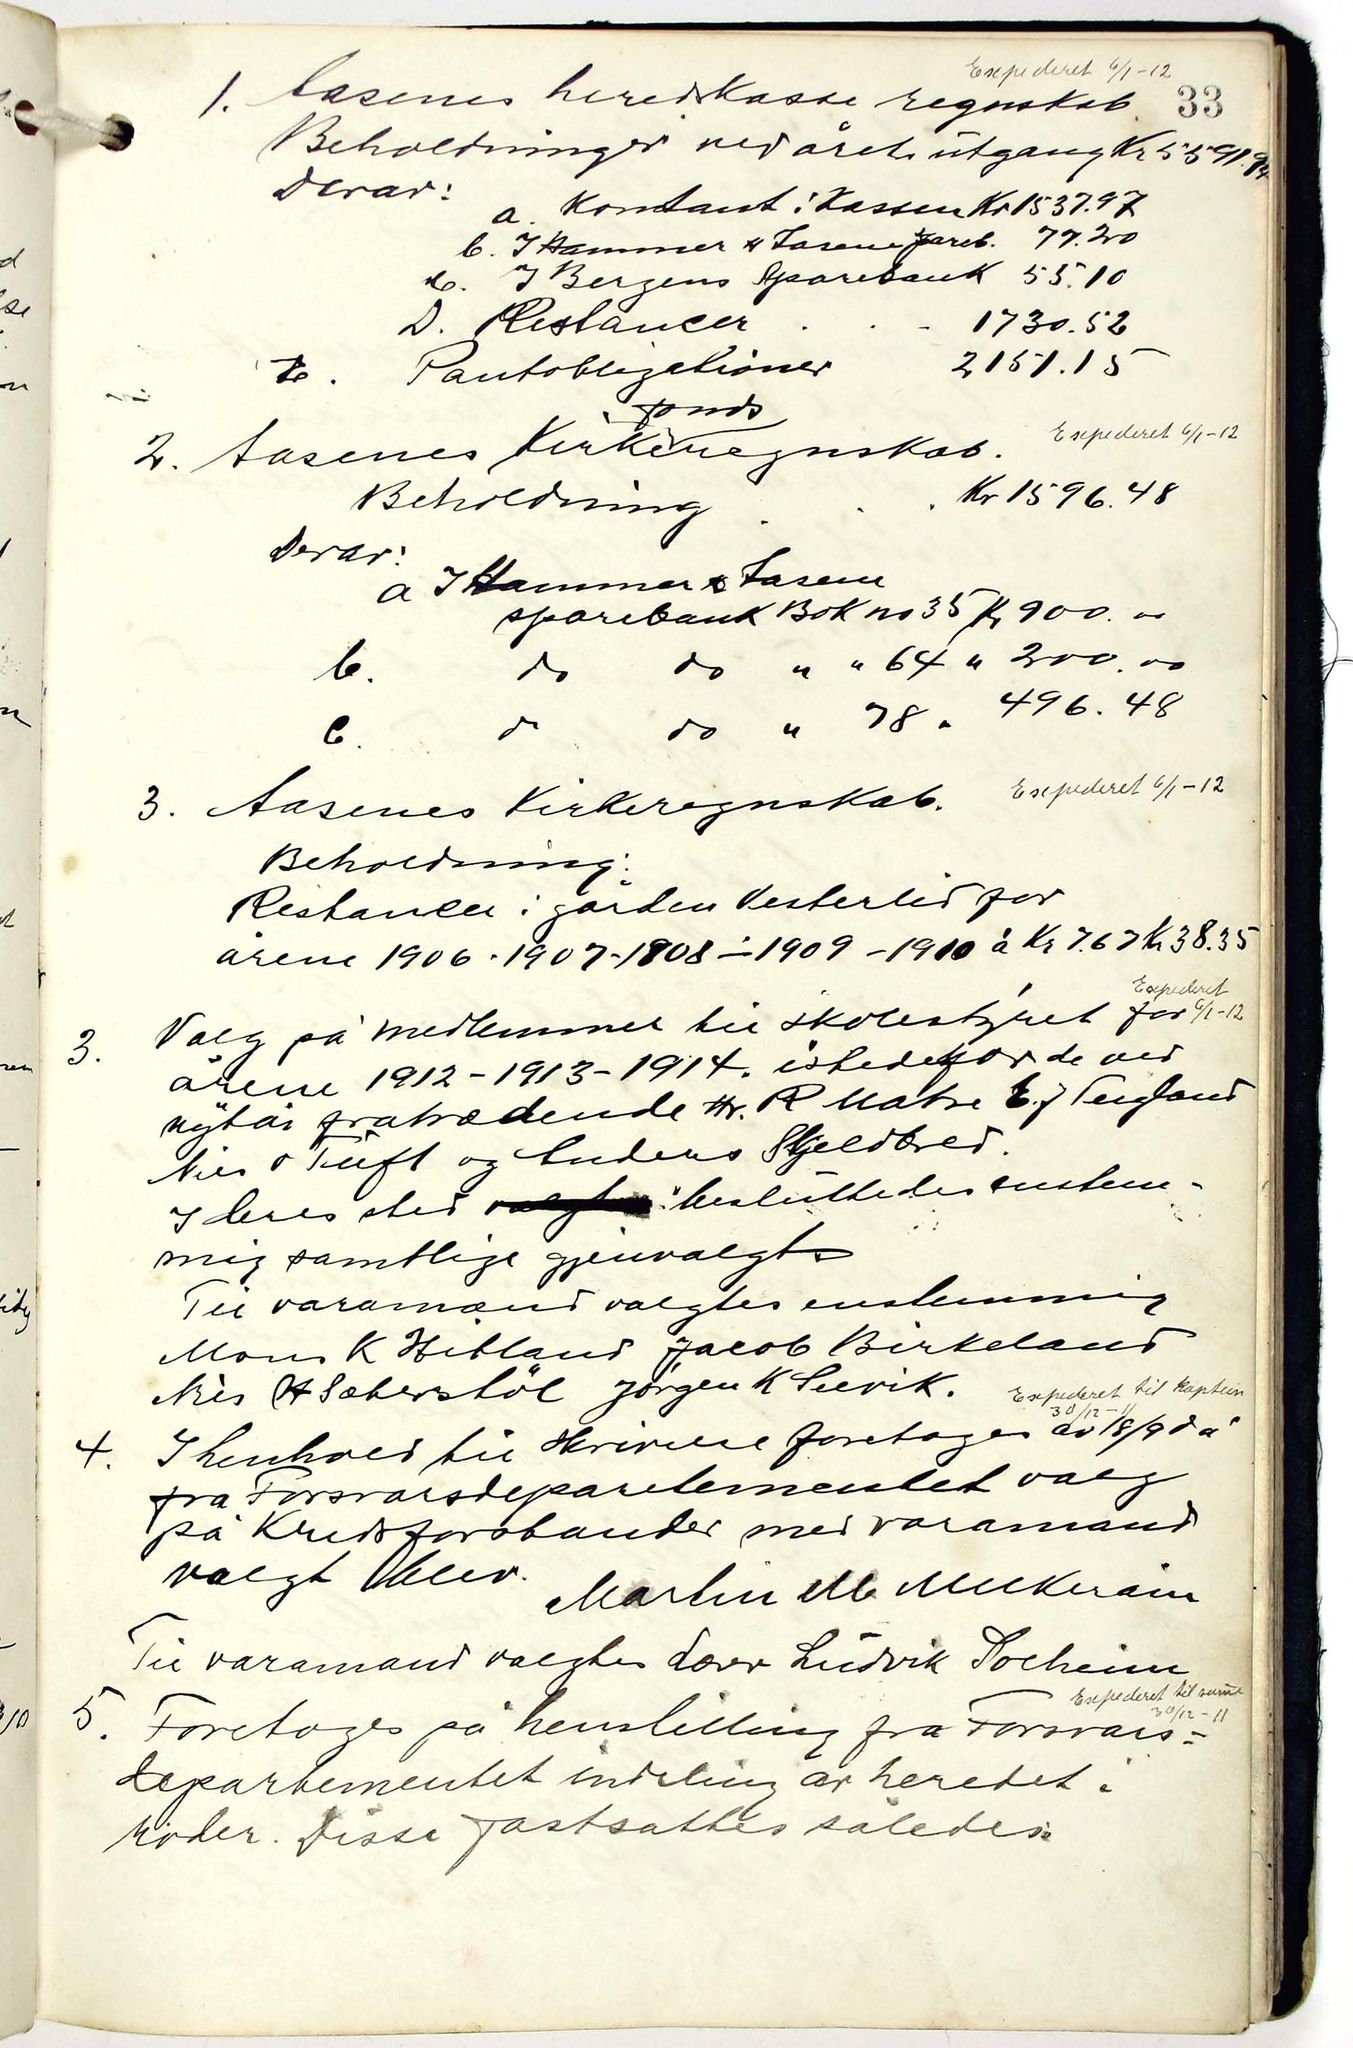 Expederet 6/1-12
33
1. Aasenes heredskasse regnskab
Beholdninger ved årets utgang Kr 5591.94
Derav:
a. Kontant i Kassen Kr 1537.97
b. I Hammer & Aasene Spareb. 77.20
c. I Bergens Sparebank 55.10
D. Restancer . . - 1730.52
E. Pantobligationer 2151.15
fonds
2. Aasenes Kirkeregnskab. Expederet 6/1-12
Beholdning . . . Kr 1596.48
Derav:
a I Hammer & Aasene
sparebank Bok no 35 Kr 900. 00
b. do do " " 64 " 200. 00
c. do do " 78 " 496. 48
3. Aasenes Kirkeregnskab. Expederet 6/1-12
Beholdning:
Restancer i gården Vesterlid for
årene 1906-1907-1908-1909-1910 à Kr 7.67 Kr 38.35
Expederet
3. Valg på medlemmer til skolestyret for 6/1-12
årene 1912-1913-1914. istedetfor de ved
nytår fratrædende Hr. R Matre E. J Teigland
Nils O Tuft og Anders Skjeldbred.
I deres sted besluttedes enstem-
mig samtlige gjenvalgt
Til varamænd valgtes enstemmig
Mons K Hitland Jacob Birkeland
Nils H Sæberstöl Jørgen K Leevik.
Expederet til Kaptein
30/12-11
4. I henhold til skrivelse foretages av 18/9 då
fra Forsvarsdepartementet valg
på Kredsforstander med varamand
valgt blev.
Martin M Mukerain
Til varamand valgtes Ludvik Soleheim
Expederet til samme
30/12-11
5. Foretoges på henstilling fra Forsvars=
departementet indeling av heredet i
roder. Disse fastsattes således: